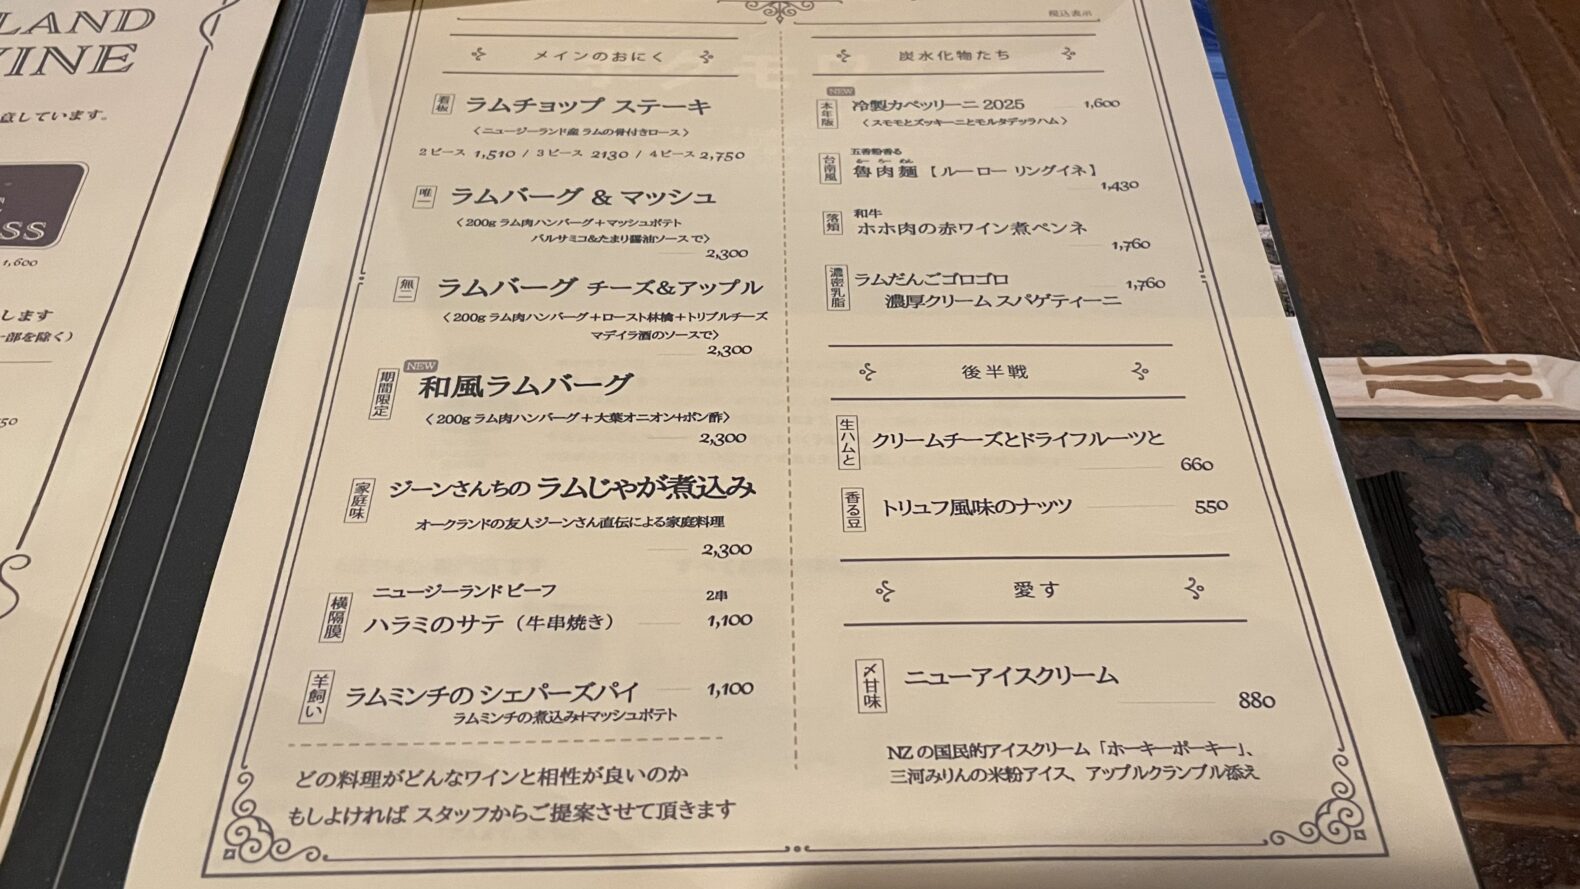 LAND
WINE
意しています。
SS
1,600
します
一部を除く）
税込表示
メインのおにく
看板
ラムチョップ ステーキ
〈ニュージーランド産 ラムの骨付きロース〉
2ピース 1,510 / 3ピース 2130 / 4ピース 2,750
唯一
ラムバーグ & マッシュ
〈200g ラム肉ハンバーグ＋マッシュポテト
バルサミコ&たまり醤油ソースで〉
2,300
無二
ラムバーグ チーズ&アップル
〈200g ラム肉ハンバーグ＋ロースト林檎＋トリプルチーズ
マデイラ酒のソースで〉
2,300
NEW
期間限定
和風ラムバーグ
〈200g ラム肉ハンバーグ＋大葉オニオン+ポン酢〉
2,300
家庭味
ジーンさんちの ラムじゃが煮込み
オークランドの友人ジーンさん直伝による家庭料理
2,300
横隔膜
ニュージーランド ビーフ 2串
ハラミのサテ（牛串焼き） 1,100
羊飼い
ラムミンチの シェパーズパイ 1,100
ラムミンチの煮込み+マッシュポテト
どの料理がどんなワインと相性が良いのか
もしよければ スタッフからご提案させて頂きます
炭水化物たち
NEW
本年版
冷製カペッリーニ 2025 1,600
〈スモモとズッキーニとモルタデッラハム〉
台南風
五香粉香る
るーろーめん
魯肉麺【ルーロー リングイネ】
1,430
落頬
和牛
ホホ肉の赤ワイン煮ペンネ
1,760
濃密乳脂
ラムだんごゴロゴロ 1,760
濃厚クリーム スパゲティーニ
後半戦
生ハムと
クリームチーズとドライフルーツと
660
香る豆
トリュフ風味のナッツ 550
愛す
〆甘味
ニューアイスクリーム
880
NZ の国民的アイスクリーム「ホーキーポーキー」、
三河みりんの米粉アイス、アップルクランブル添え